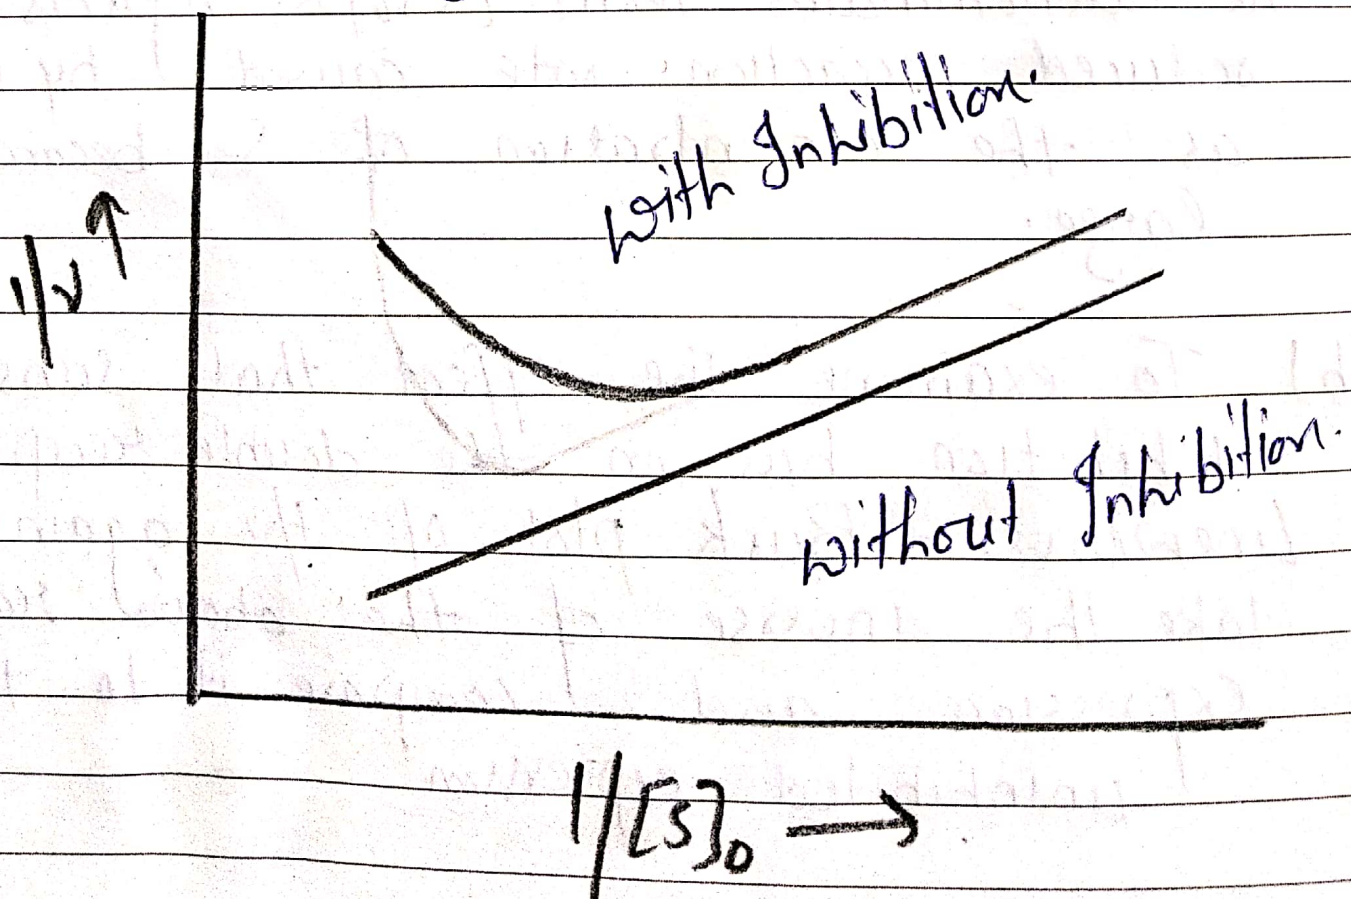 with Inhibition.
1/v ↑
without Inhibition.
1/[S]₀ →